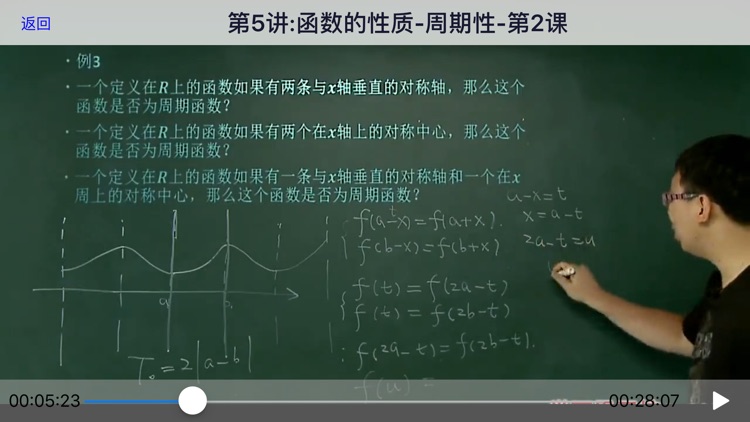 返回
第5讲:函数的性质-周期性-第2课
· 例3
· 一个定义在R上的函数如果有两条与x轴垂直的对称轴，那么这个
函数是否为周期函数？
· 一个定义在R上的函数如果有两个在x轴上的对称中心，那么这个
函数是否为周期函数？
· 一个定义在R上的函数如果有一条与x轴垂直的对称轴和一个在x
周上的对称中心，那么这个函数是否为周期函数？
u-x=t
x=a-t
2a-t=u
t
f(a-x)=f(a+x).
f(b-x)=f(b+x)
f(t)=f(2a-t)
f(t)=f(2b-t)
∴f(2a-t)=f(2b-t).
f(u)=
a b
T₀=2|a-b|
00:05:23
00:28:07